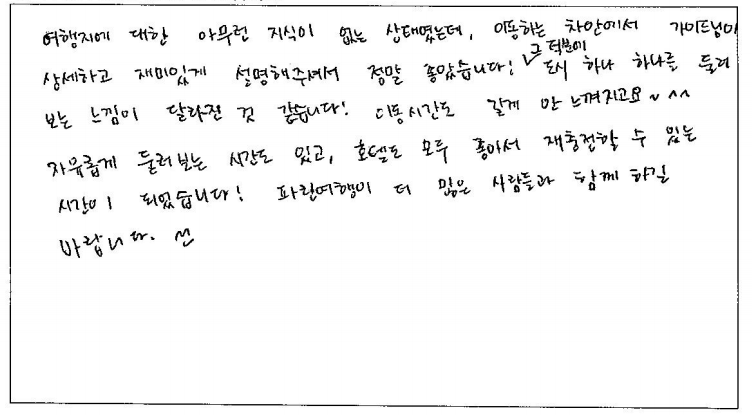 여행지에 대한 아무런 지식이 없는 상태였는데, 이동하는 차안에서 가이드님이
상세하고 재미있게 설명해주셔서 정말 좋았습니다! 그 덕분에 도시 하나 하나를 둘러
보는 느낌이 달라진 것 같습니다! 이동시간도 길게 안 느껴지고요~ ^^
자유롭게 둘러보는 시간도 있고, 호텔도 모두 좋아서 재충전할 수 있는
시간이 되었습니다! 파란여행이 더 많은 사람들과 함께 하길
바랍니다.